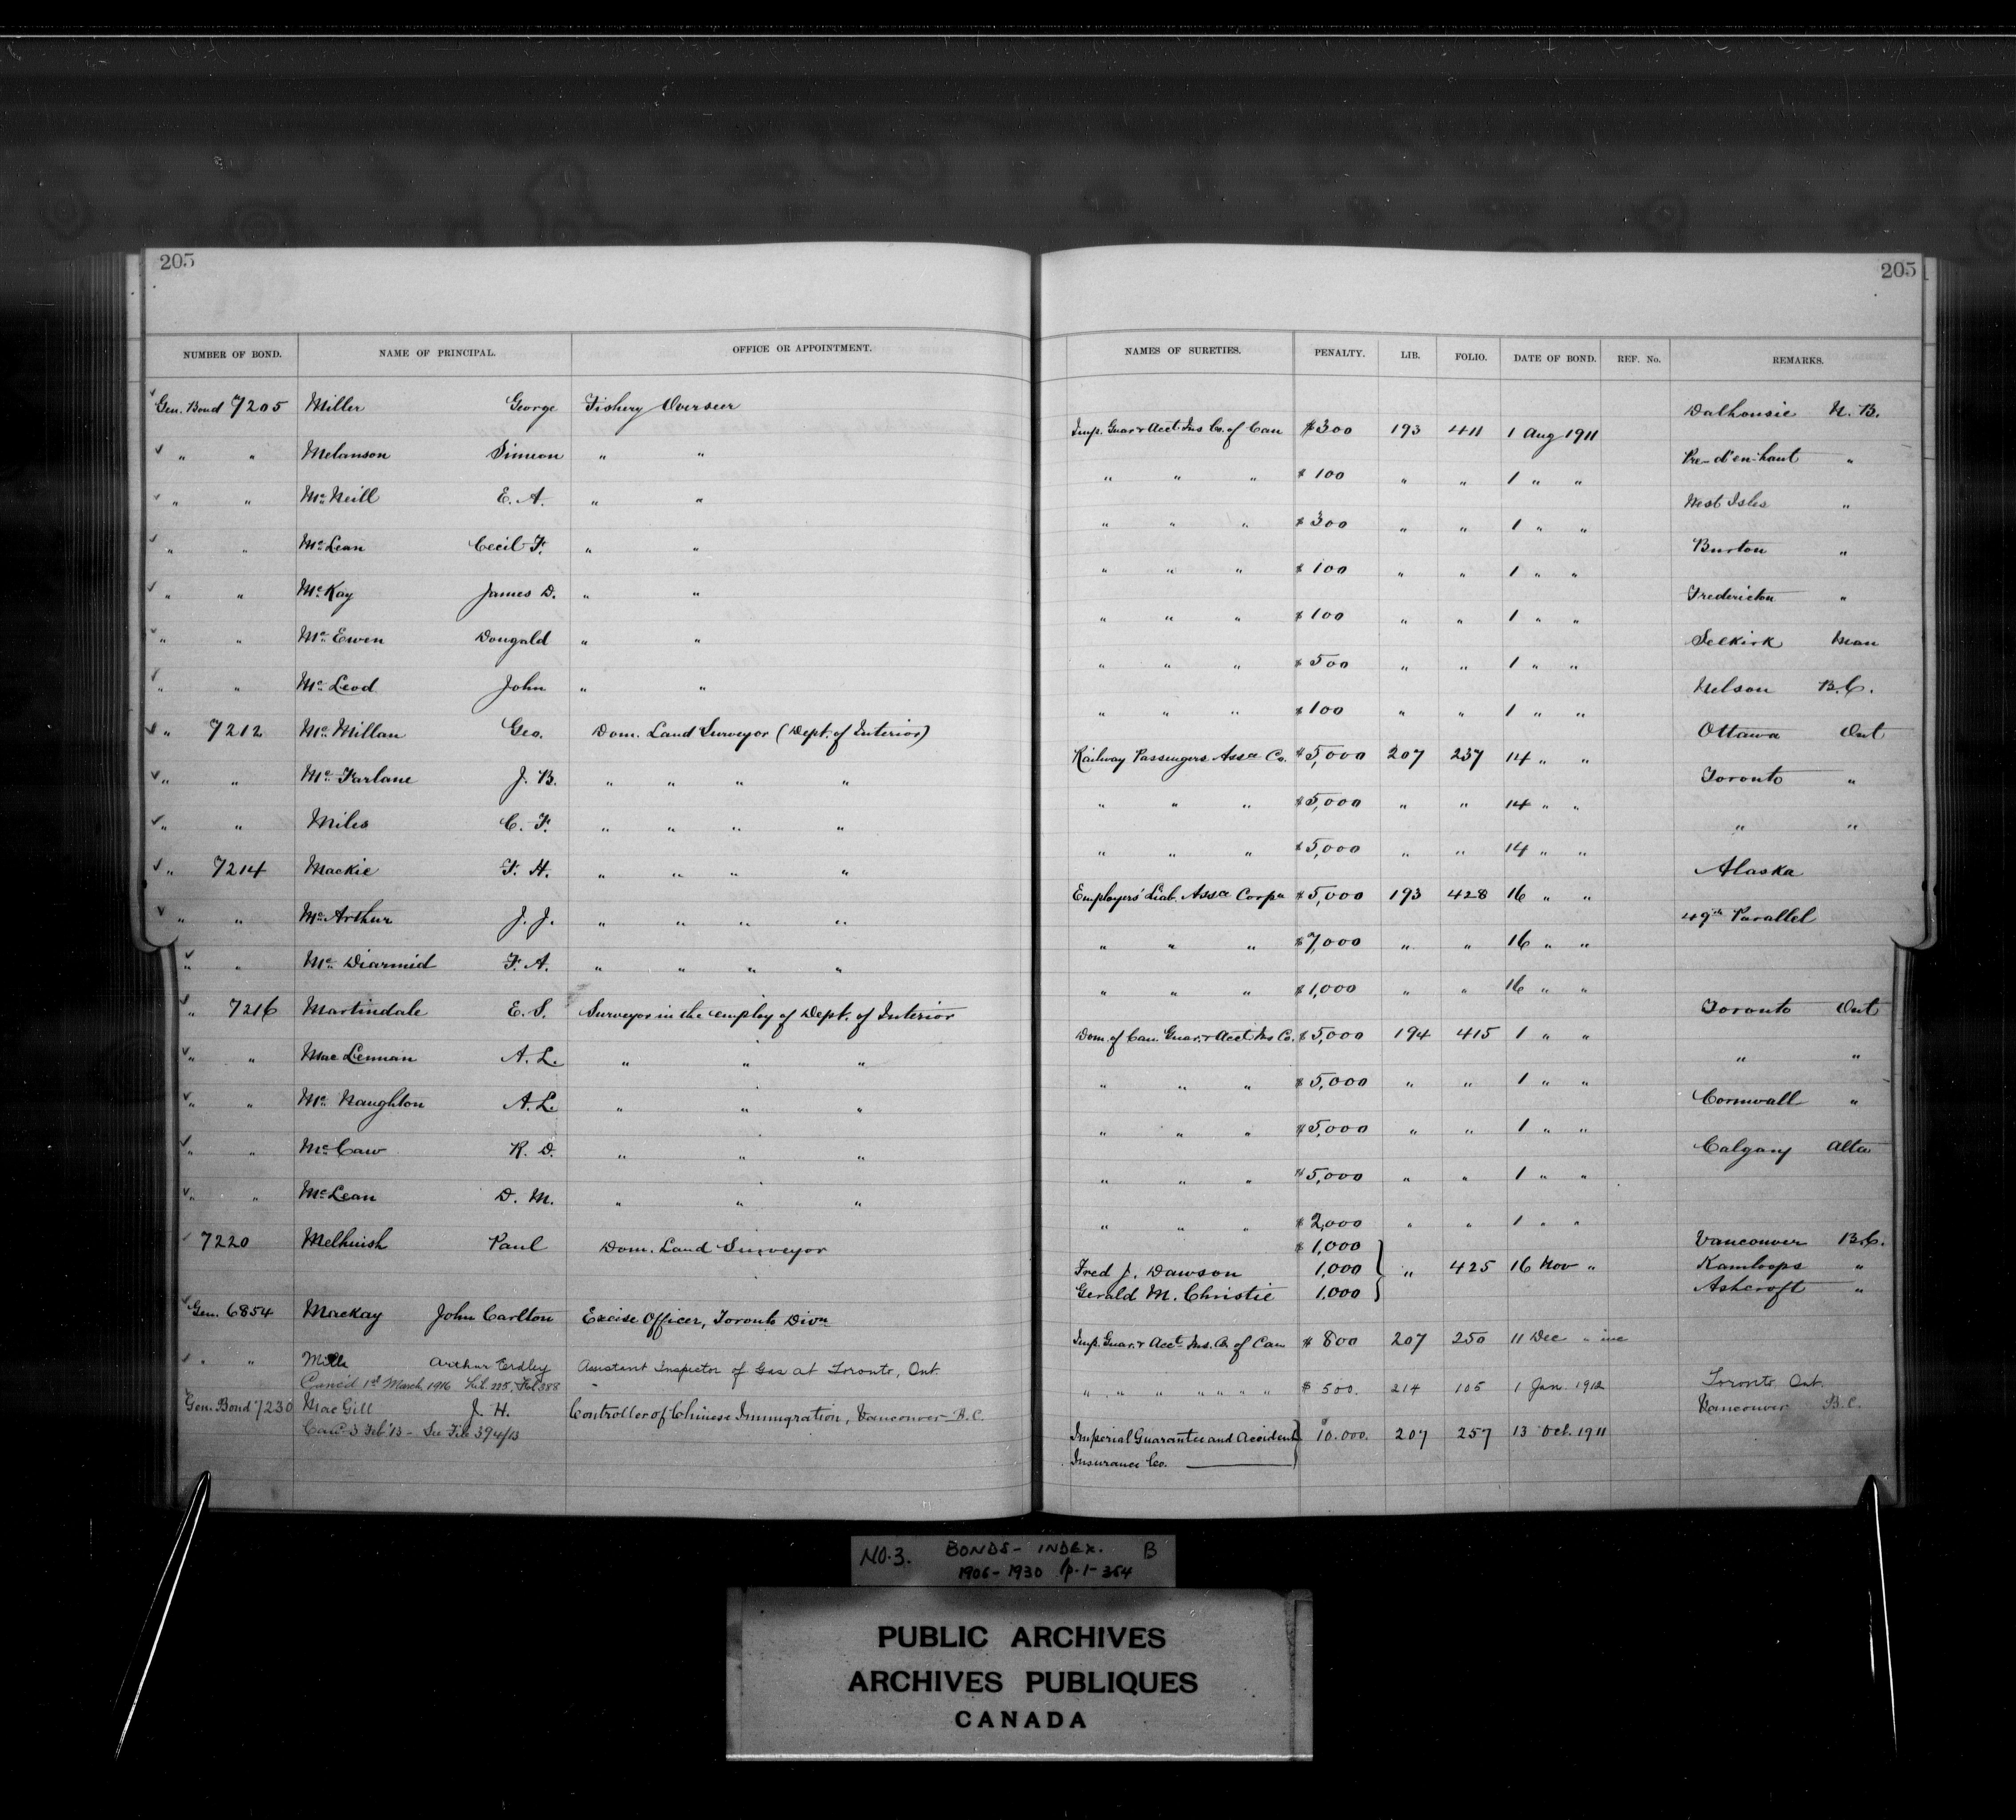 205 205
NUMBER OF BOND. NAME OF PRINCIPAL. OFFICE OR APPOINTMENT. NAMES OF SURETIES. PENALTY. LIB. FOLIO. DATE OF BOND. REF. No. REMARKS.
Gen. Bond 7205 Miller George Fishery Overseer Imp. Guar & Acct. Ins Co. of Can $300 193 411 1 Aug 1911 Dalhousie N. B.
" " Melanson Simeon " " " " " $100 " " 1 " " Pre-d'en-haut "
" " McNeill E. A. " " " " " $300 " " 1 " " West Isles "
" " McLean Cecil F. " " " " " $100 " " 1 " " Burton "
" " McKay James D. " " " " " $100 " " 1 " " Fredericton "
" " McEwen Dougald " " " " " $500 " " 1 " " Selkirk Man
" " McLeod John " " " " " $100 " " 1 " " Nelson B.C.
" 7212 McMillan Geo. Dom. Land Surveyor (Dept. of Interior) Railway Passengers Assce Co. $5,000 207 237 14 " " Ottawa Ont
" " McFarlane J. B. " " " " " " " $5,000 " " 14 " " Toronto "
" " Miles C. F. " " " " " " " $5,000 " " 14 " " " "
" 7214 Mackie F. H. " " " " Employers' Liab. Assce Corpn $5,000 193 428 16 " " Alaska
" " McArthur J. J. " " " " " " " $7,000 " " 16 " " 49th Parallel
" " McDiarmid F. A. " " " " " " " $1,000 " " 16 " "
" 7216 Martindale E. S. Surveyor in the employ of Dept. of Interior Dom. of Can. Guar. & Acct. Ins Co. $5,000 194 415 1 " " Toronto Ont
" " MacLennan A. L. " " " " " " $5,000 " " 1 " " " "
" " McNaughton A. L. " " " " " " $5,000 " " 1 " " Cornwall "
" " McCaw R. D. " " " " " " $5,000 " " 1 " " Calgary Alta
" " McLean D. M. " " " " " " $2,000 " " 1 " "
7220 Melhuish Paul Dom. Land Surveyor $1,000 Vancouver B.C.
Fred J. Dawson 1,000 " 425 16 Nov " Kamloops "
Gerald M. Christie 1,000 Ashcroft "
Gen. 6854 Mackay John Carlton Excise Officer, Toronto Divn Imp. Guar. & Acct. Ins. Co. of Can $800 207 250 11 Dec "
" " Mills Arthur Erdley Assistant Inspector of Gas at Toronto, Ont. " " " " " " " $500. 214 105 1 Jan. 1912 Toronto Ont.
Canc'd 1st March 1916 Lib. 225, Fol 388
Gen. Bond 7230 MacGill J. H. Controller of Chinese Immigration, Vancouver B.C. Imperial Guarantee and Accident Insurance Co. $10.000. 207 257 13 Oct. 1911 Vancouver B.C.
Canc'd 3 Feb '13 - See File 394/13
NO. 3. BONDS - INDEX. B
1906-1930 p. 1-364
PUBLIC ARCHIVES
ARCHIVES PUBLIQUES
CANADA